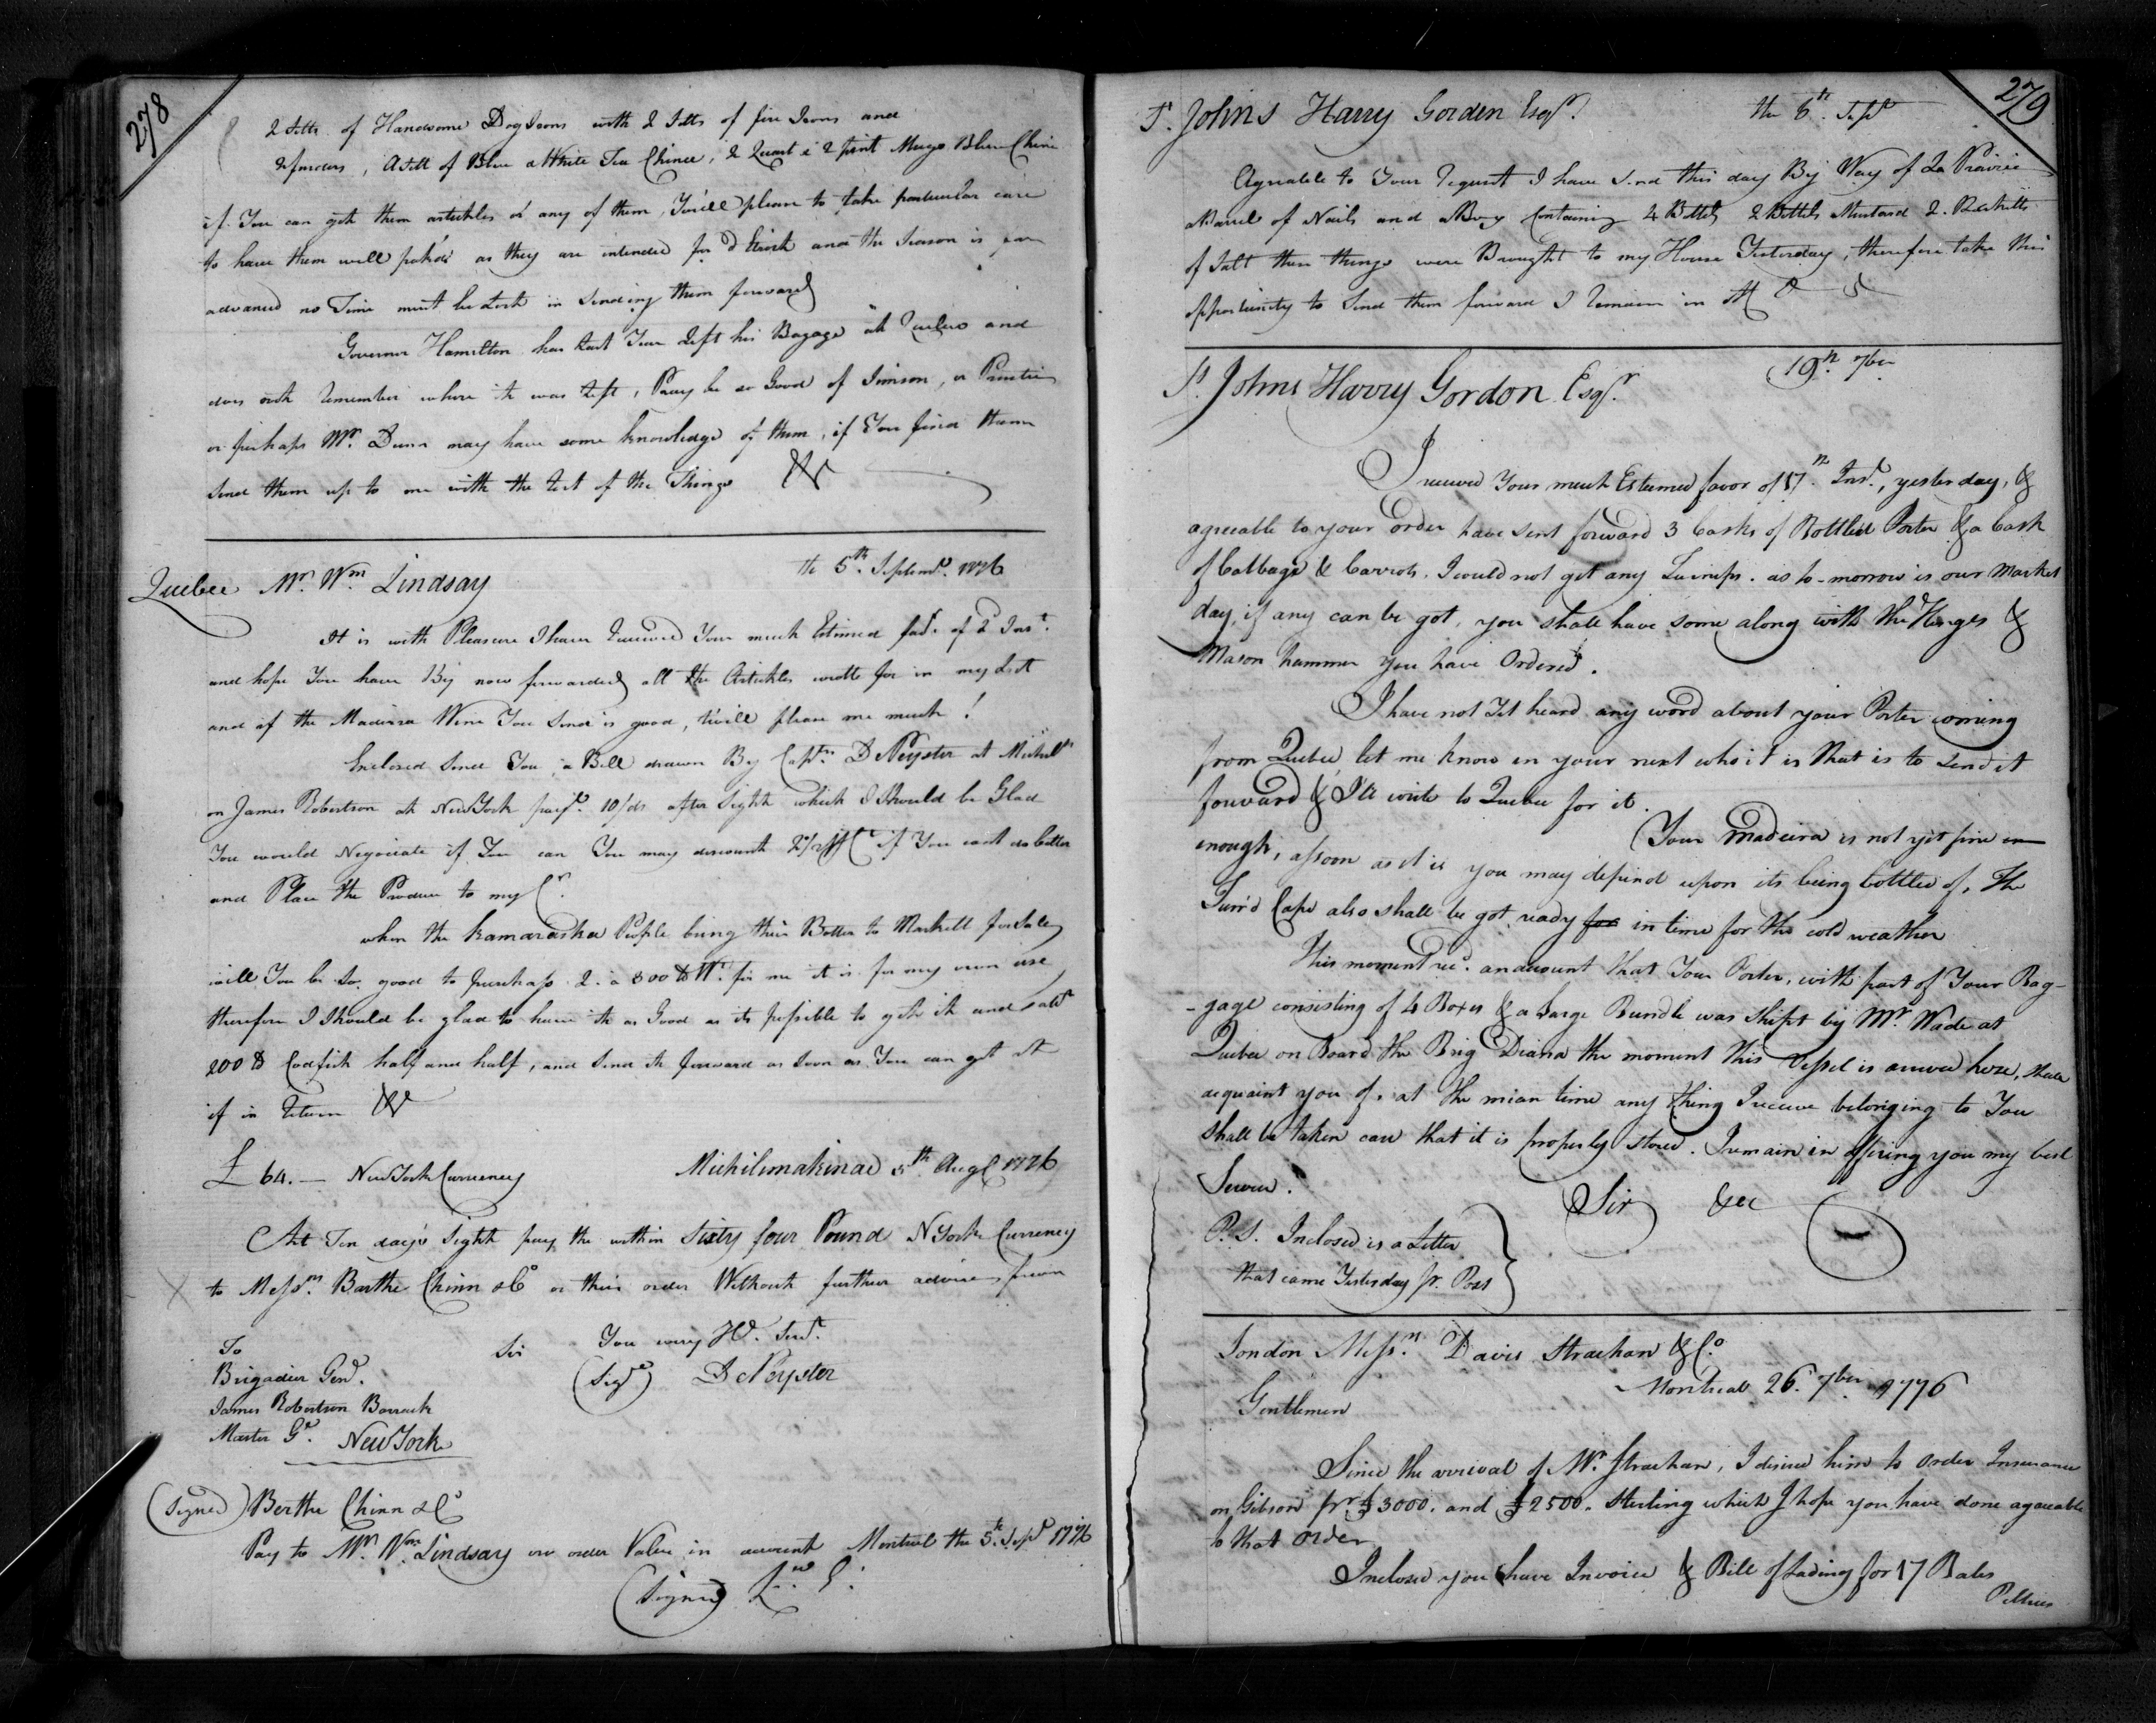 278
2 Setts of Handsome Dog Irons with 2 Setts of fire Irons and
2 fenders, a Sett of Blue & White Tea Chinee, 2 Quart & 2 pint Mugs Blue Chine
if You can get them artickles or any of them, You'll please to take particular care
to have them well pak'd as they are intended for d'Etroit and the Season is far
advanced no Time must be Lost in Sending them forward
Governor Hamilton has Last Year Left his Bagage at Quebec and
does not remember where it was Left, Pray be so Good of Simson, or Prentice
or perhaps Mr. Dunn may have some knowledge of them, if You find them
Send them up to me with the rest of the Things &c
Quebec Mr. Wm Lindsay
the 5th. Septemr. 1776
It is with Pleasure I have received Your much Estimed favr. of 2d Inst.
and hope You have By now forwarded all the Artickles wrotte for in my Last
and if the Madeira Wine You Send is good, t'will please me much!
Enclosed Send You, a Bill drawn By Captn. D Peyster at Michilk
on James Robertson at New York 10/ds after Sight which I Should be Glad
You would Negociate if You can You may discount 2½ if You cant do better
and Place the Produce to my Cr.
when the Kamaraska People bring their Botter to Markett for Sale
will You be So good to purchass 2 à 300 lb Wt. for me it is for my own use
therefore I Should be glad to have it as Good as its possible to gett it and
200 lb Codfish half and half, and Send it forward as Soon as You can get it
if in Return &c
£ 64. — New York Currency
Michilimakinac 5th Augt 1776
At Ten day's Sight pay the within Sixty four Pound N York Currency
to Messrs. Barthe Chinn & Co or their order Without further advice from
Sir
You very Hble. Servt.
(Sigd) D Peyster
To
Brigadier Genl.
James Robertson Barrack
Master Gl. New York
(Signed) Berthe Chinn & Co
Pay to Mr. Wm. Lindsay or order Value in account Montreal the 5th. Sept 1776
(Signed) L. E.
279
St. Johns Harry Gorden Esqr.
the 8th. Sept
Agreable to Your request I have Send this day By Way of La Prairie
a Barrel of Nails and a Box Containing 4 Bottls 2 Bottls Mustard 2. Baskitts
of Salt these things were Brought to my House Yesterday, therefore take this
opportunity to Send them forward I remain in
St. Johns Harry Gordon Esqr.
19th. 7ber
I received Your much Esteemed favor of 17th. Inst., yesterday, &
agreeable to your order have sent forward 3 Casks of Bottled Porter & a Cask
of Cabbage & Carrots, I could not get any Turnips. as to-morrow is our Market
day, if any can be got, you shall have some along with the Hinges &
Mason hammer you have Ordered.
I have not Yet heard any word about your Porter coming
from Quebec, let me know in your next who it is that is to send it
forward & I'll write to Quebec for it.
Your Madeira is not yet fine en
enough, assoon as it is you may depend upon its being bottled of, The
Furr'd Caps also shall be got ready for in time for the cold weather
This moment recd. an account that Your Porter, with part of Your Bag-
-gage consisting of 4 Boxes & a Large Bundle was Shipt by Mr. Wade at
Quebec on Board the Brig Diana the moment this Vessel is arrived here, shall
acquaint you of. at the mean time any thing I receive belonging to You
Shall be taken care that it is properly stored. I remain in offering you my best
Service.
Sir &ca
P. S. Inclosed is a Letter
that came Yesterday pr. Post
London Messrs. Davis Strachan & Co.
Montreal 26. 7ber 1776
Gentlemen
Since the arrival of Mr. Strachan, I desired him to order Insurance
on Gibson pr. £3000. and £2500. Sterling which I hope you have done agreeable
to that order
Inclosed you have Invoice & Bill of Lading for 17 Bales
Peltries